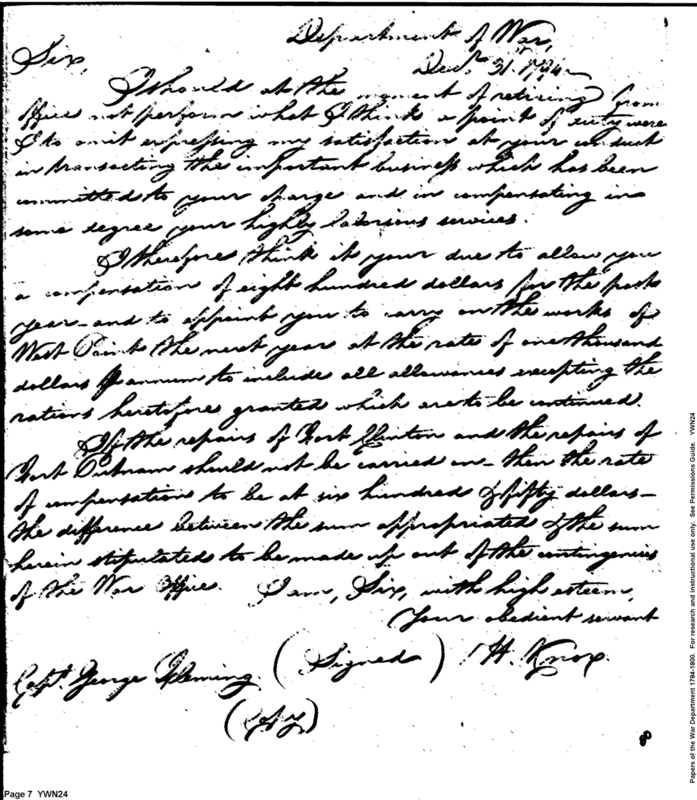 Department of War,
Sir, Decr. 31. 1794
I should at the moment of retiring from
office not perform what I think a point of duty were
I to omit expressing my satisfaction at your conduct
in transacting the important business which has been
committed to your charge and in compensating in
some degree your highly laborious services.
I therefore think it your due to allow you
a compensation of eight hundred dollars for the past
year - and to appoint you to carry on the works of
West Point the next year at the rate of one thousand
dollars annum to include all allowances excepting the
rations heretofore granted which are to be continued.
If the repairs of Fort Clinton and the repairs of
Fort Putnam should not be carried on - then the rate
of compensation to be at six hundred & fifty dollars -
the difference between the sum appropriated & the sum
herein stipulated to be made up out of the contingencies
of the War Office. I am, Sir, with high esteem,
Your obedient servant
(Signed) H. Knox.
Capt. George Fleming
8
Page 7 YWN24
Papers of the War Department 1784-1800. For research and instructional use only. See Permissions Guide. YWN24